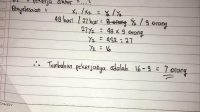 Penyelesaian : x₁/x₂ = y₂/y₁
48 hari / 27 hari = y₂ / 9 orang
27 y₂ = 48 x 9 orang
y₂ = 432 : 27
y₂ = 16
∴ Tambahan pekerjanya adalah 16 - 9 = 7 orang